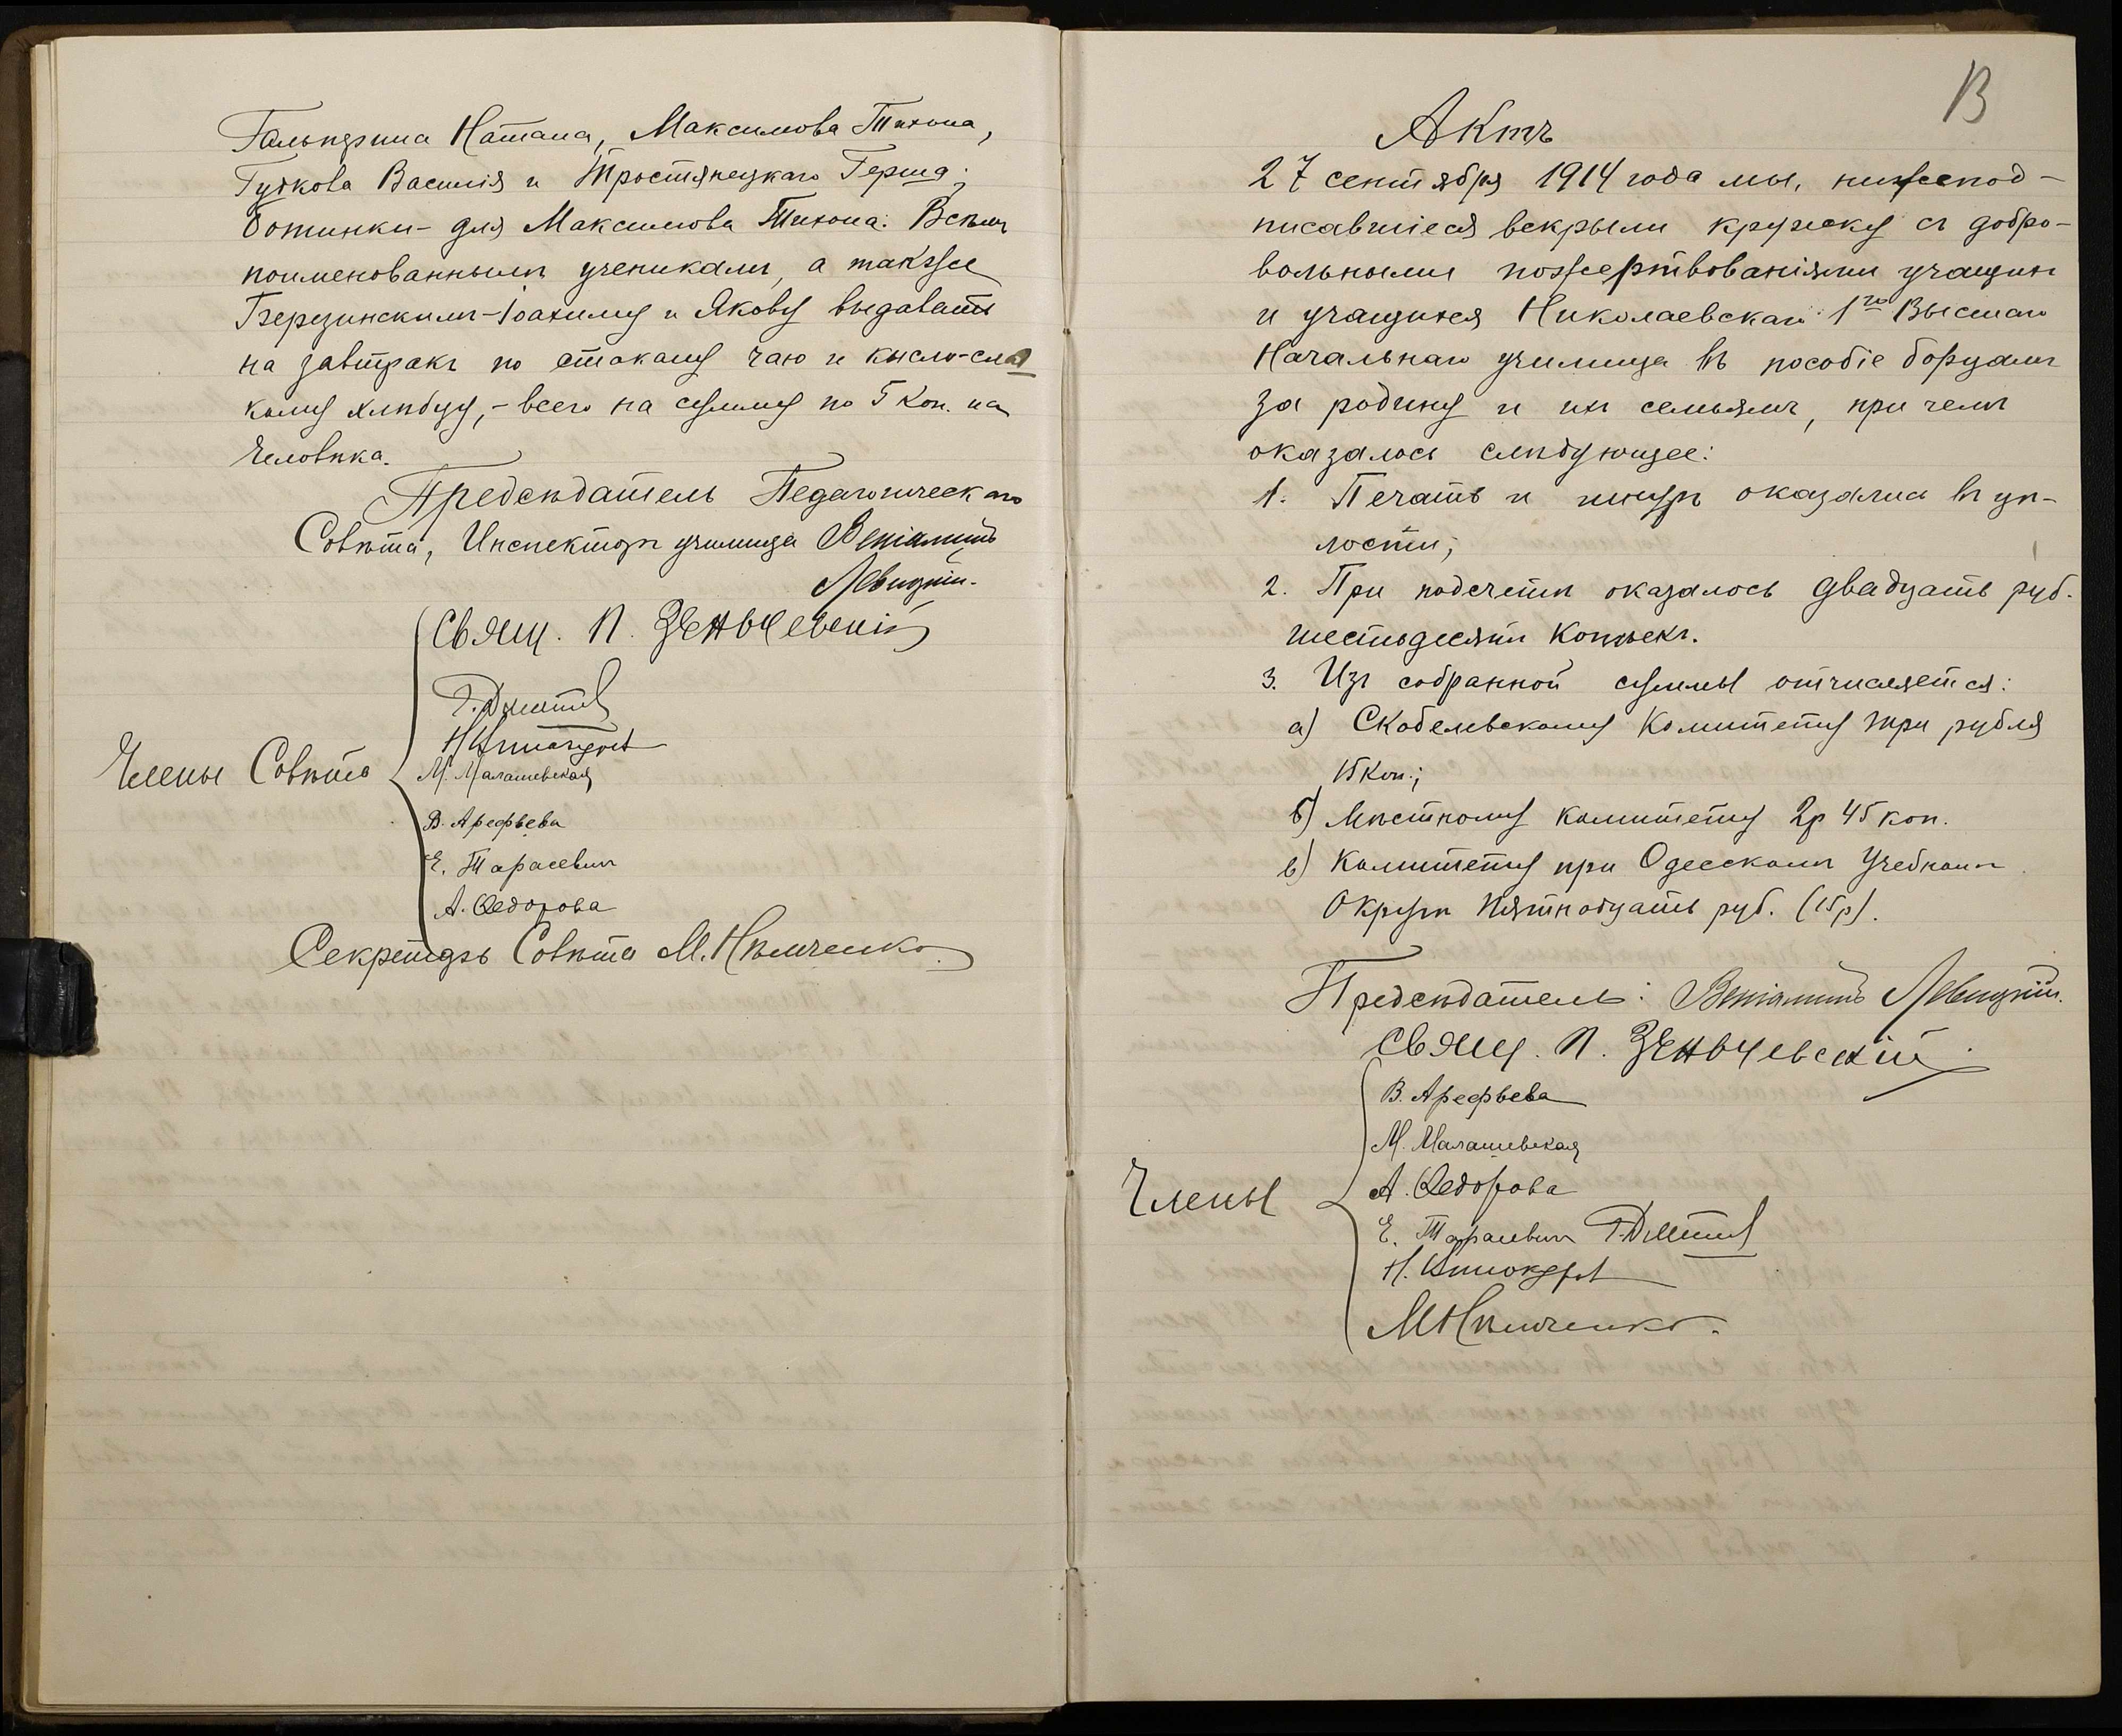 Гальперина Натана, Максимова Тихона,
Гудкова Василія и Тростянецкаго Герша;
ботинки - для Максимова Тихона. Всѣмъ
поименованнымъ ученикамъ, а также
Березинскимъ - Іоахиму и Якову выдавать
на завтракъ по стакану чаю и кысло-слад
кому хлѣбцу, - всего на сумму по 5 коп. на
человѣка.
Предсѣдатель Педагогическаго
Совѣта, Инспекторъ училища Веніаминъ
Левицкій.
Свящ. П. Зеньчевскій
М. Малашевская
Члены Совѣта
В. Арефьева
Е. Тарасевич
А. Ѳедорова
Секретарь Совѣта М. Нѣмченко.
13
Актъ
27 сентября 1914 года мы, нижепод-
писавшіеся вскрыли кружку съ добро-
вольными пожертвованіями учащихъ
и учащихся Николаевскаго 1го Высшаго
Начальнаго училища въ пособіе борцамъ
за родину и их семьямъ, при чемъ
оказалось слѣдующее:
1. Печать и шнуръ оказались въ цѣ-
лости;
2. При подсчетѣ оказалось двадцать руб.
шестьдесятъ копѣекъ.
3. Изъ собранной суммы отчисляется:
а) Скобелевскому Комитету три рубля
15 коп.;
б) Мѣстному комитету 2р 45 коп.
в) Комитету при Одесскомъ Учебномъ
Округѣ пятнадцать руб. (15р).
Предсѣдатель: Веніаминъ Левицкій.
Свящ. П. Зеньчевскій
В. Арефьева
М. Малашевская
Члены
А. Ѳедорова
Е. Тарасевич
М Нѣмченко.